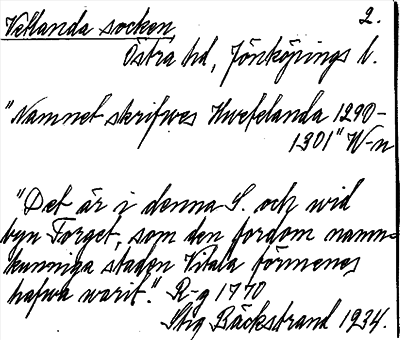 Vetlanda socken 2.
Östra hd, Jönköpings l.
"Namnet skrifwes Hwetelanda 1290-
1301" W-n
"Det är i denna S. och wid
byn Torget, som den fordom namn-
kunniga staden Vitala förmenes
hafwa warit." R-g 1770
Stig Bäckstrand 1934.